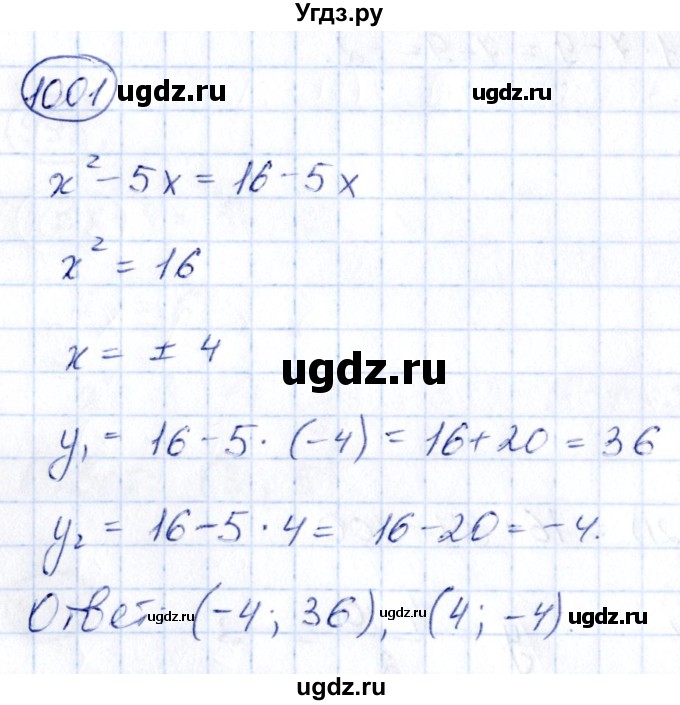 Угдз.ру
1001 ugdz.ru ugdz.ru
x² - 5x = 16 - 5x
x² = 16
x = ± 4
ugdz.ru
y₁ = 16 - 5 · (-4) = 16 + 20 = 36
y₂ = 16 - 5 · 4 = 16 - 20 = -4.
Ответ: ugdz.ru (-4; 36), ugdz.ru (4; -4). ugdz.ru
ugdz.ru